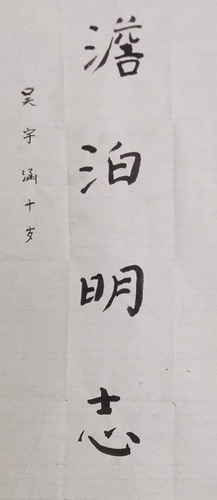 澹泊明志
吴宇涵十岁